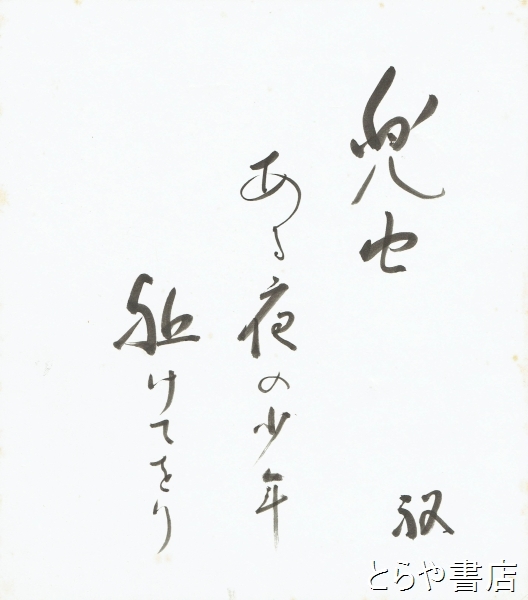 兜虫
ある夜の少年
駈けてをり
とらや書店